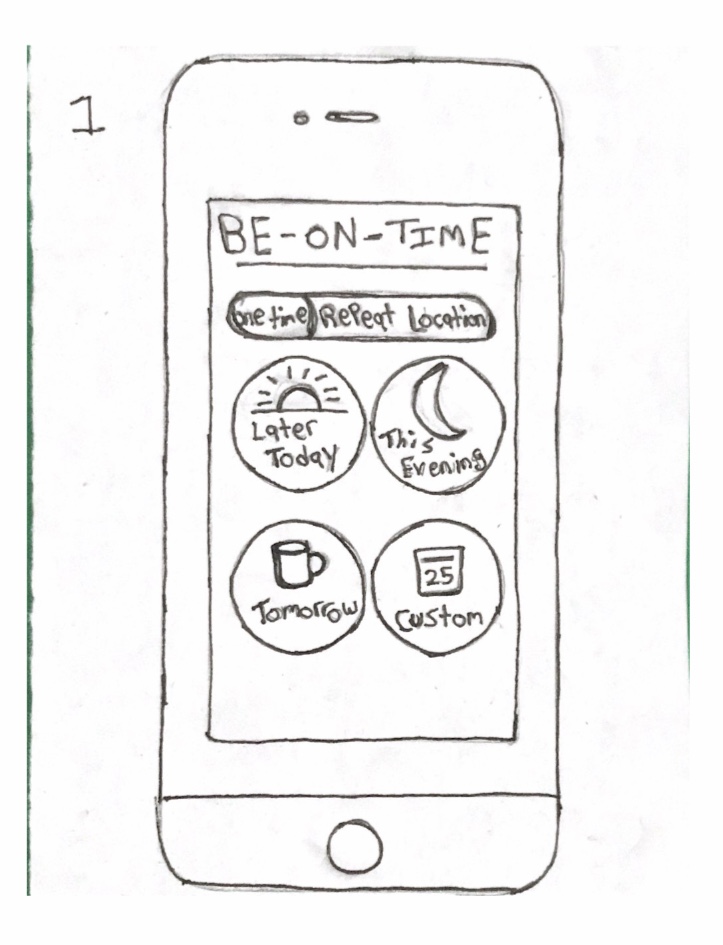 1
BE-ON-TIME
one time Repeat Location
Later
Today
This
Evening
Tomorrow
25
Custom